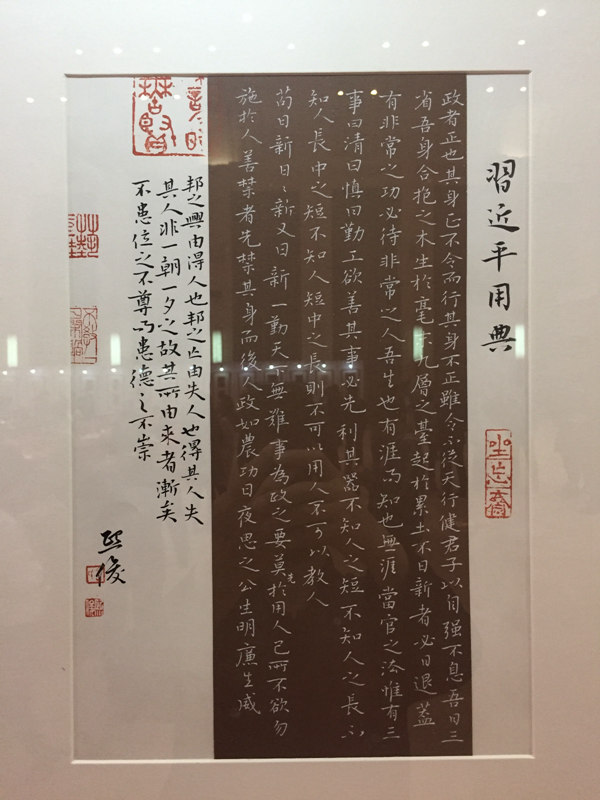 習近平用典
坐忘齋
政者正也其身正不令而行其身不正雖令不從天行健君子以自强不息吾日三
省吾身合抱之木生於毫末九層之臺起於累土不日新者必日退蓋
有非常之功必待非常之人吾生也有涯而知也無涯當官之法惟有三
事曰清曰慎曰勤工欲善其事必先利其器不知人之短不知人之長不
知人長中之短不知人短中之長則不可以用人不可以教人
苟日新日〻新又日新一勤天下無難事為政之要莫先於用人己所不欲勿
施於人善禁者先禁其身而後人政如農功日夜思之公生明廉生威
邦之興由得人也邦之亡由失人也得其人失
其人非一朝一夕之故其所由來者漸矣
不患位之不尊而患德〻之不崇
熙俊